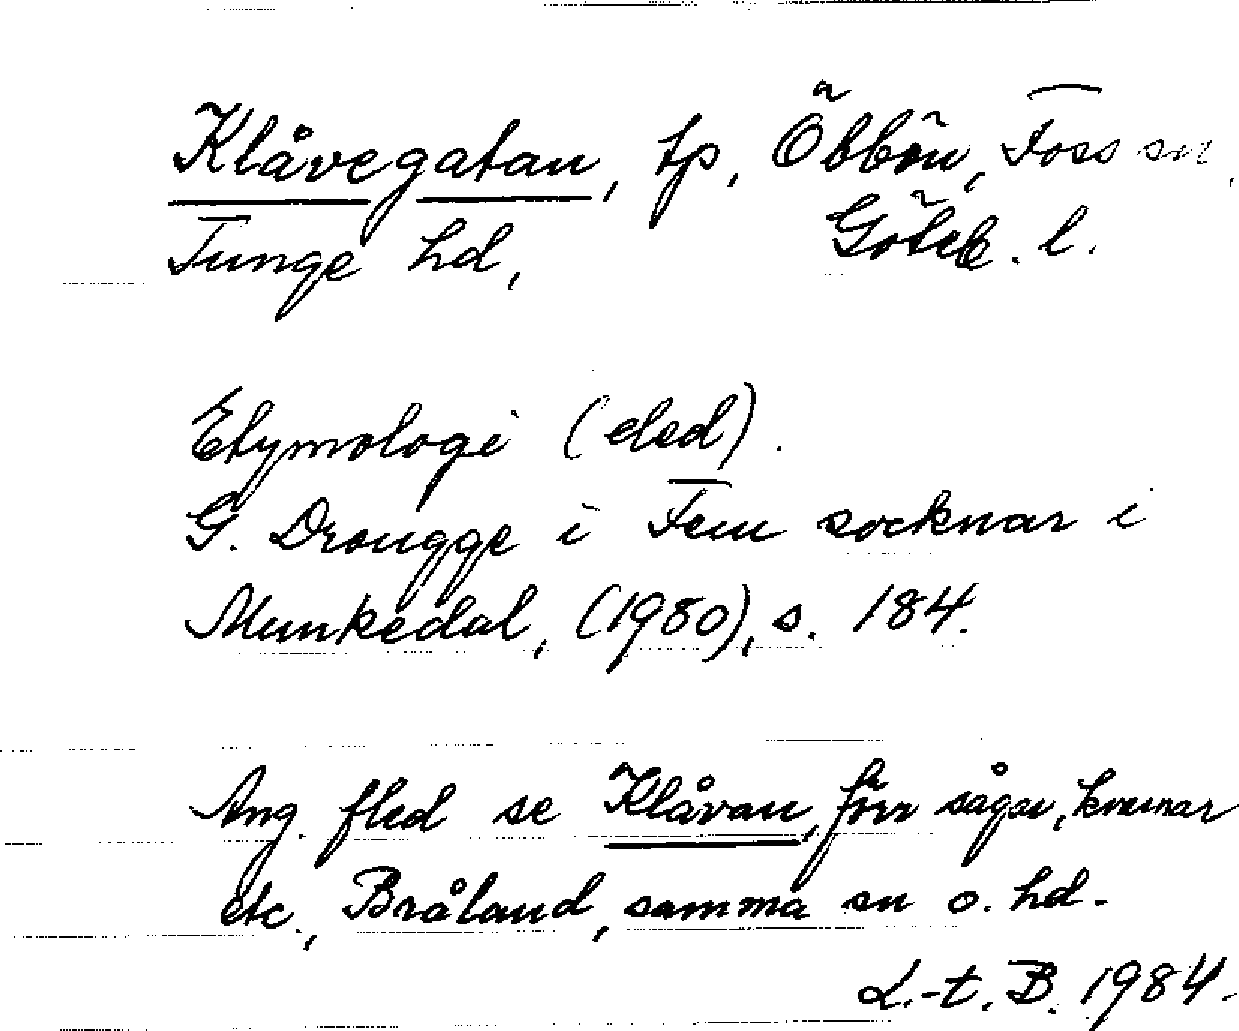 Klåvegatan, tp, Öbbön, Foss sn,
Tunge hd, Göteb. l.
Etymologi (eled).
G. Drougge i Fem socknar i
Munkedal, (1980), s. 184.
Ang. fled se Klåvan, förr sågar, kvarnar
etc., Bråland, samma sn o. hd.
L.-t. B. 1984.